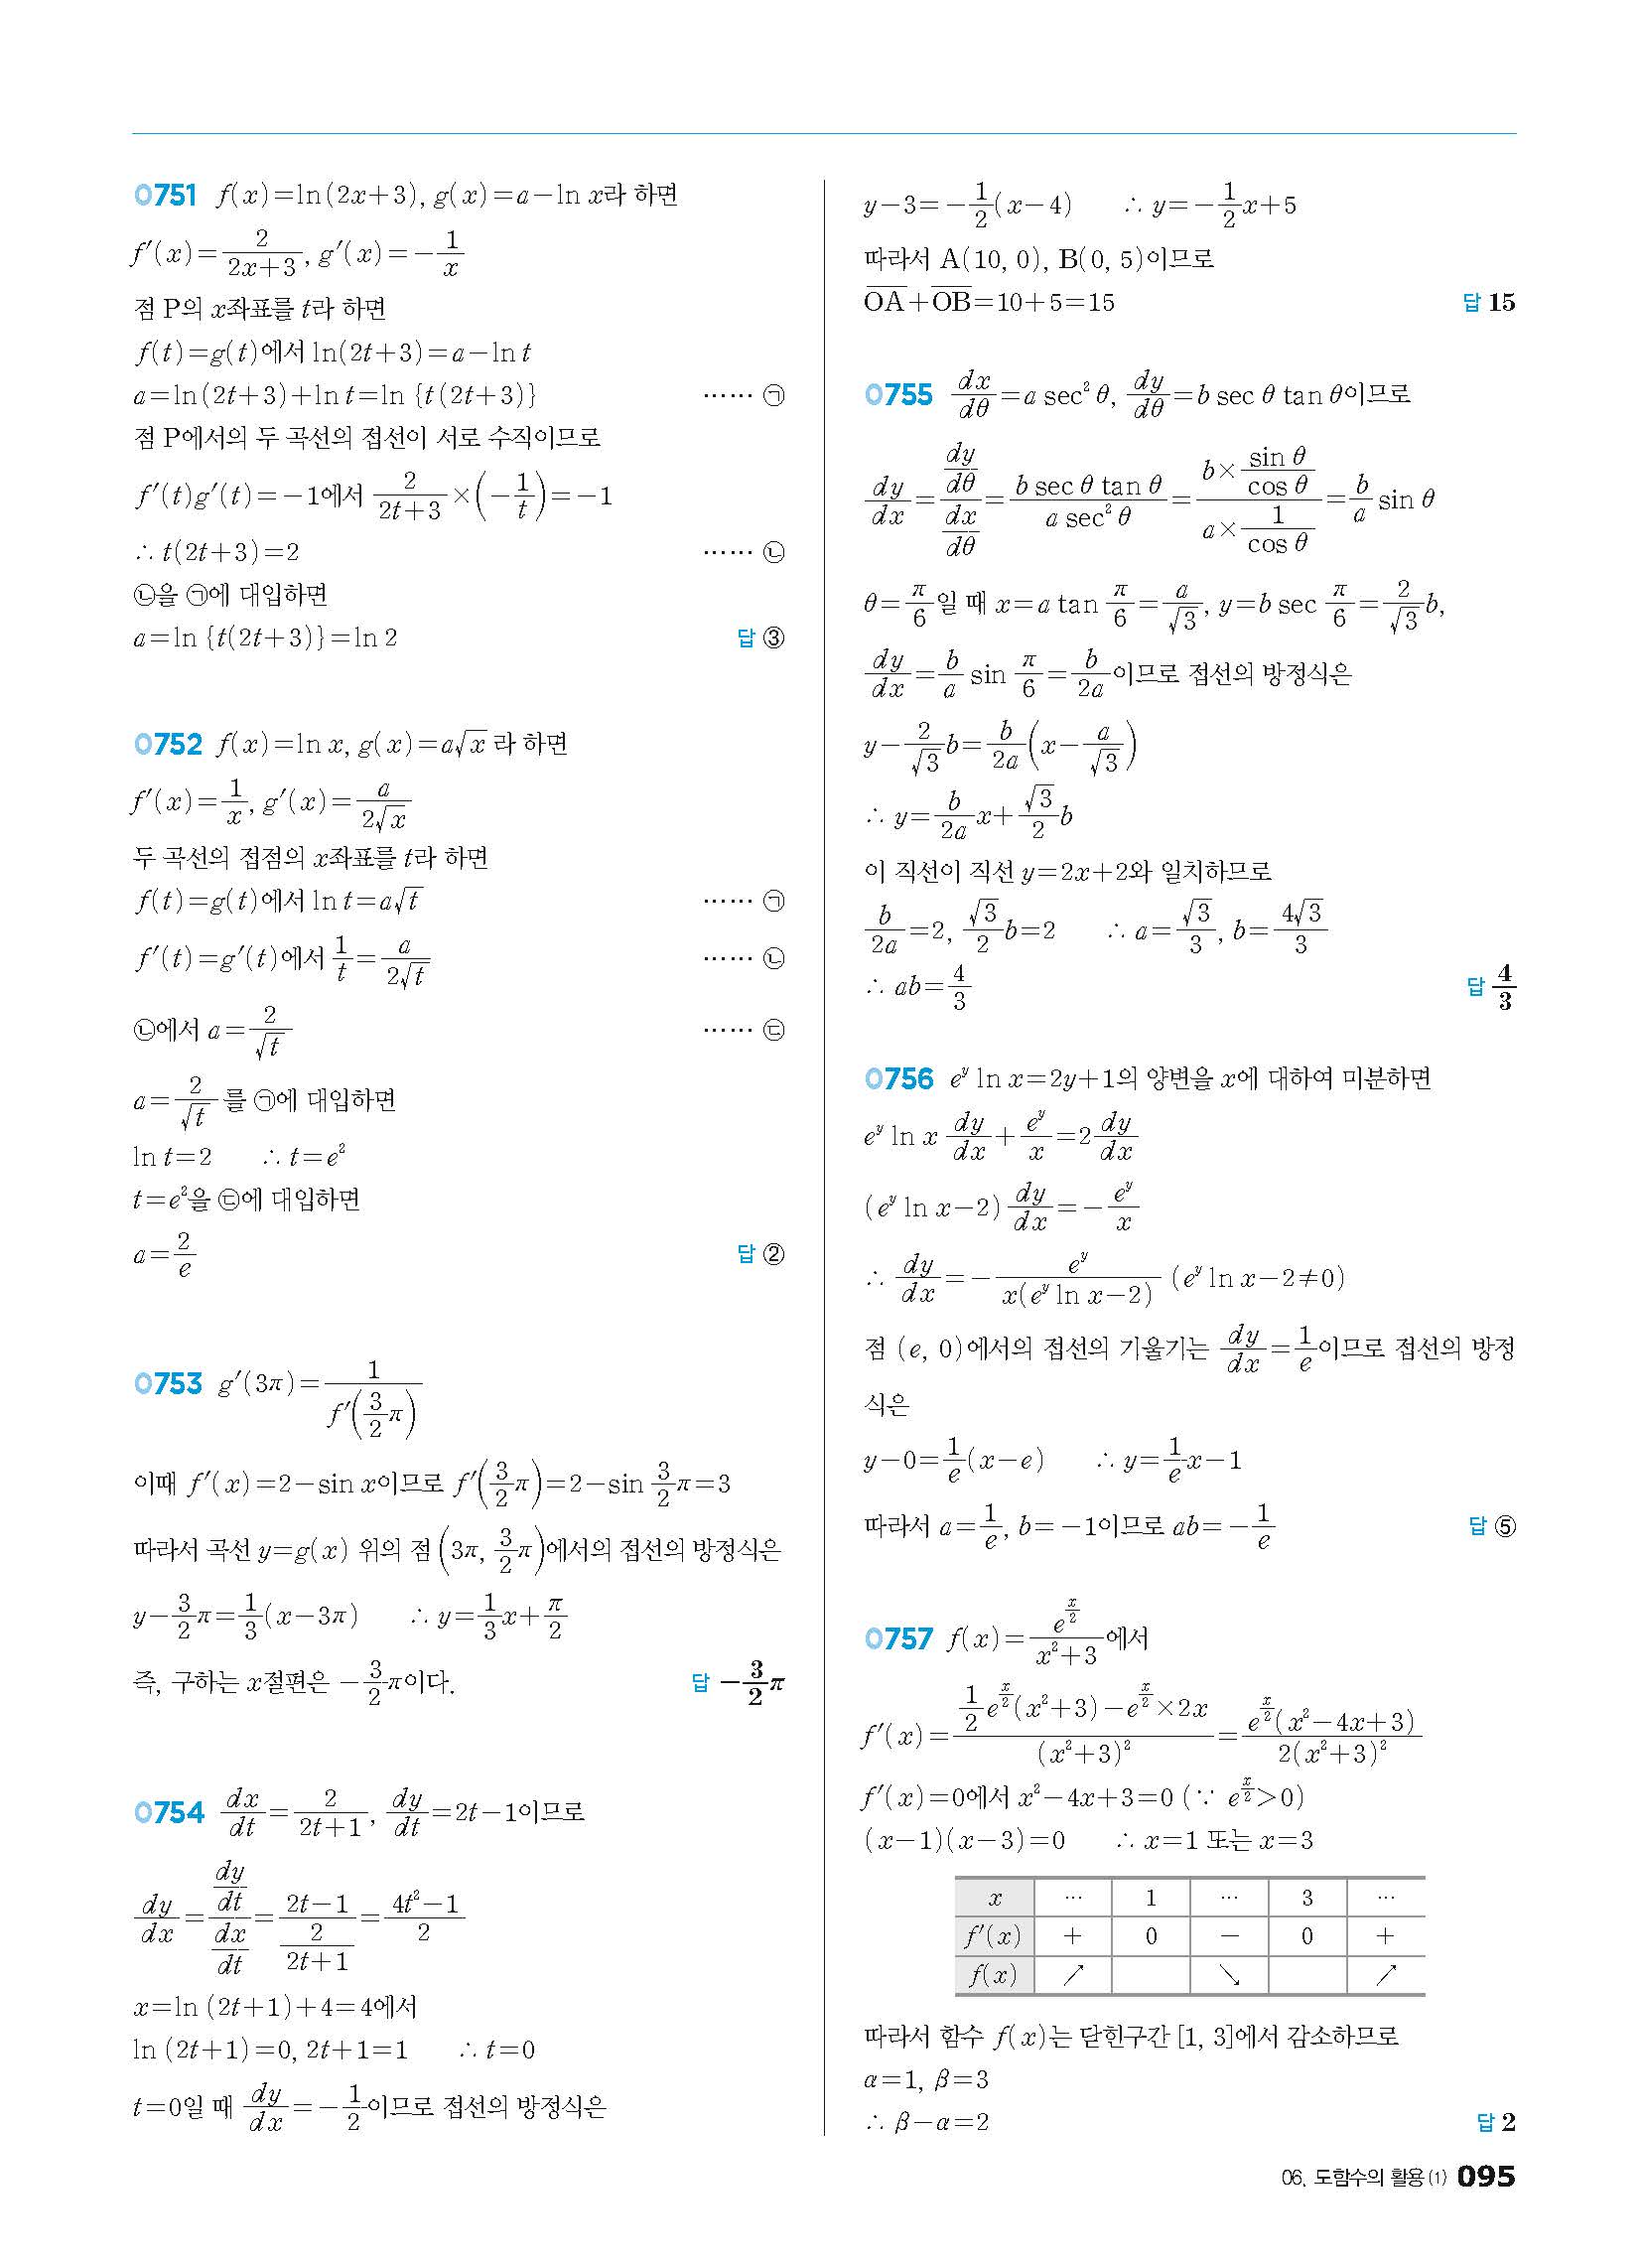 0751 f(x)=ln(2x+3), g(x)=a-ln x라 하면
f'(x)=2/(2x+3), g'(x)=-1/x
점 P의 x좌표를 t라 하면
f(t)=g(t)에서 ln(2t+3)=a-ln t
a=ln(2t+3)+ln t=ln {t(2t+3)} …… ㉠
점 P에서의 두 곡선의 접선이 서로 수직이므로
f'(t)g'(t)=-1에서 2/(2t+3)×(-1/t)=-1
∴ t(2t+3)=2 …… ㉡
㉡을 ㉠에 대입하면
a=ln {t(2t+3)}=ln 2 답 ③
0752 f(x)=ln x, g(x)=a√x라 하면
f'(x)=1/x, g'(x)=a/(2√x)
두 곡선의 접점의 x좌표를 t라 하면
f(t)=g(t)에서 ln t=a√t …… ㉠
f'(t)=g'(t)에서 1/t=a/(2√t) …… ㉡
㉡에서 a=2/√t …… ㉢
a=2/√t를 ㉠에 대입하면
ln t=2 ∴ t=e²
t=e²을 ㉢에 대입하면
a=2/e 답 ②
0753 g'(3π)=1/f'(3/2 π)
이때 f'(x)=2-sin x이므로 f'(3/2 π)=2-sin 3/2 π=3
따라서 곡선 y=g(x) 위의 점 (3π, 3/2 π)에서의 접선의 방정식은
y-3/2 π=1/3(x-3π) ∴ y=1/3 x+π/2
즉, 구하는 x절편은 -3/2 π이다. 답 -3/2 π
0754 dx/dt=2/(2t+1), dy/dt=2t-1이므로
dy/dx=(dy/dt)/(dx/dt)=(2t-1)/(2/(2t+1))=(4t²-1)/2
x=ln (2t+1)+4=4에서
ln (2t+1)=0, 2t+1=1 ∴ t=0
t=0일 때 dy/dx=-1/2이므로 접선의 방정식은
y-3=-1/2(x-4) ∴ y=-1/2 x+5
따라서 A(10, 0), B(0, 5)이므로
O̅A̅+O̅B̅=10+5=15 답 15
0755 dx/dθ=a sec² θ, dy/dθ=b sec θ tan θ이므로
dy/dx=(dy/dθ)/(dx/dθ)=(b sec θ tan θ)/(a sec² θ)=(b×sin θ/cos θ)/(a×1/cos θ)=b/a sin θ
θ=π/6일 때 x=a tan π/6=a/√3, y=b sec π/6=2/√3 b,
dy/dx=b/a sin π/6=b/2a이므로 접선의 방정식은
y-2/√3 b=b/2a(x-a/√3)
∴ y=b/2a x+√3/2 b
이 직선이 직선 y=2x+2와 일치하므로
b/2a=2, √3/2 b=2 ∴ a=√3/3, b=4√3/3
∴ ab=4/3 답 4/3
0756 e^y ln x=2y+1의 양변을 x에 대하여 미분하면
e^y ln x dy/dx+e^y/x=2 dy/dx
(e^y ln x-2) dy/dx=-e^y/x
∴ dy/dx=-e^y/(x(e^y ln x-2)) (e^y ln x-2≠0)
점 (e, 0)에서의 접선의 기울기는 dy/dx=1/e이므로 접선의 방정
식은
y-0=1/e(x-e) ∴ y=1/e x-1
따라서 a=1/e, b=-1이므로 ab=-1/e 답 ⑤
0757 f(x)=e^(x/2)/(x²+3)에서
f'(x)=(1/2 e^(x/2)(x²+3)-e^(x/2)×2x)/(x²+3)²=e^(x/2)(x²-4x+3)/(2(x²+3)²)
f'(x)=0에서 x²-4x+3=0 (∵ e^(x/2)>0)
(x-1)(x-3)=0 ∴ x=1 또는 x=3
x … 1 … 3 …
f'(x) + 0 - 0 +
f(x) ↗ ↘ ↗
따라서 함수 f(x)는 닫힌구간 [1, 3]에서 감소하므로
α=1, β=3
∴ β-α=2 답 2
06. 도함수의 활용 (1) 095